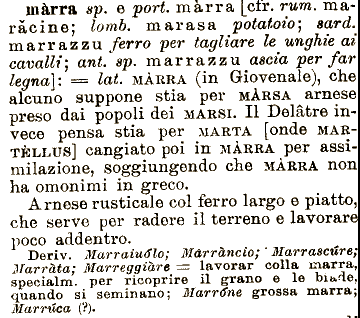 màrra sp. e port. màrra [cfr. rum. ma-
răcine; lomb. marasa potatoio; sard.
marrazzu ferro per tagliare le unghie ai
cavalli; ant. sp. marrazzu ascia per far
legna]: = lat. MÀRRA (in Giovenale), che
alcuno suppone stia per MÀRSA arnese
preso dai popoli dei MARSI. Il Delâtre in-
vece pensa stia per MARTA [onde MAR-
TÈLLUS] cangiato poi in MÀRRA per assi-
milazione, soggiungendo che MÀRRA non
ha omonimi in greco.
Arnese rusticale col ferro largo e piatto,
che serve per radere il terreno e lavorare
poco addentro.
Deriv. Marraiuólo; Marràncio; Marrascúre;
Marràta; Marreggiàre = lavorar colla marra,
specialm. per ricoprire il grano e le biade,
quando si seminano; Marróne grossa marra;
Marrúca (?).